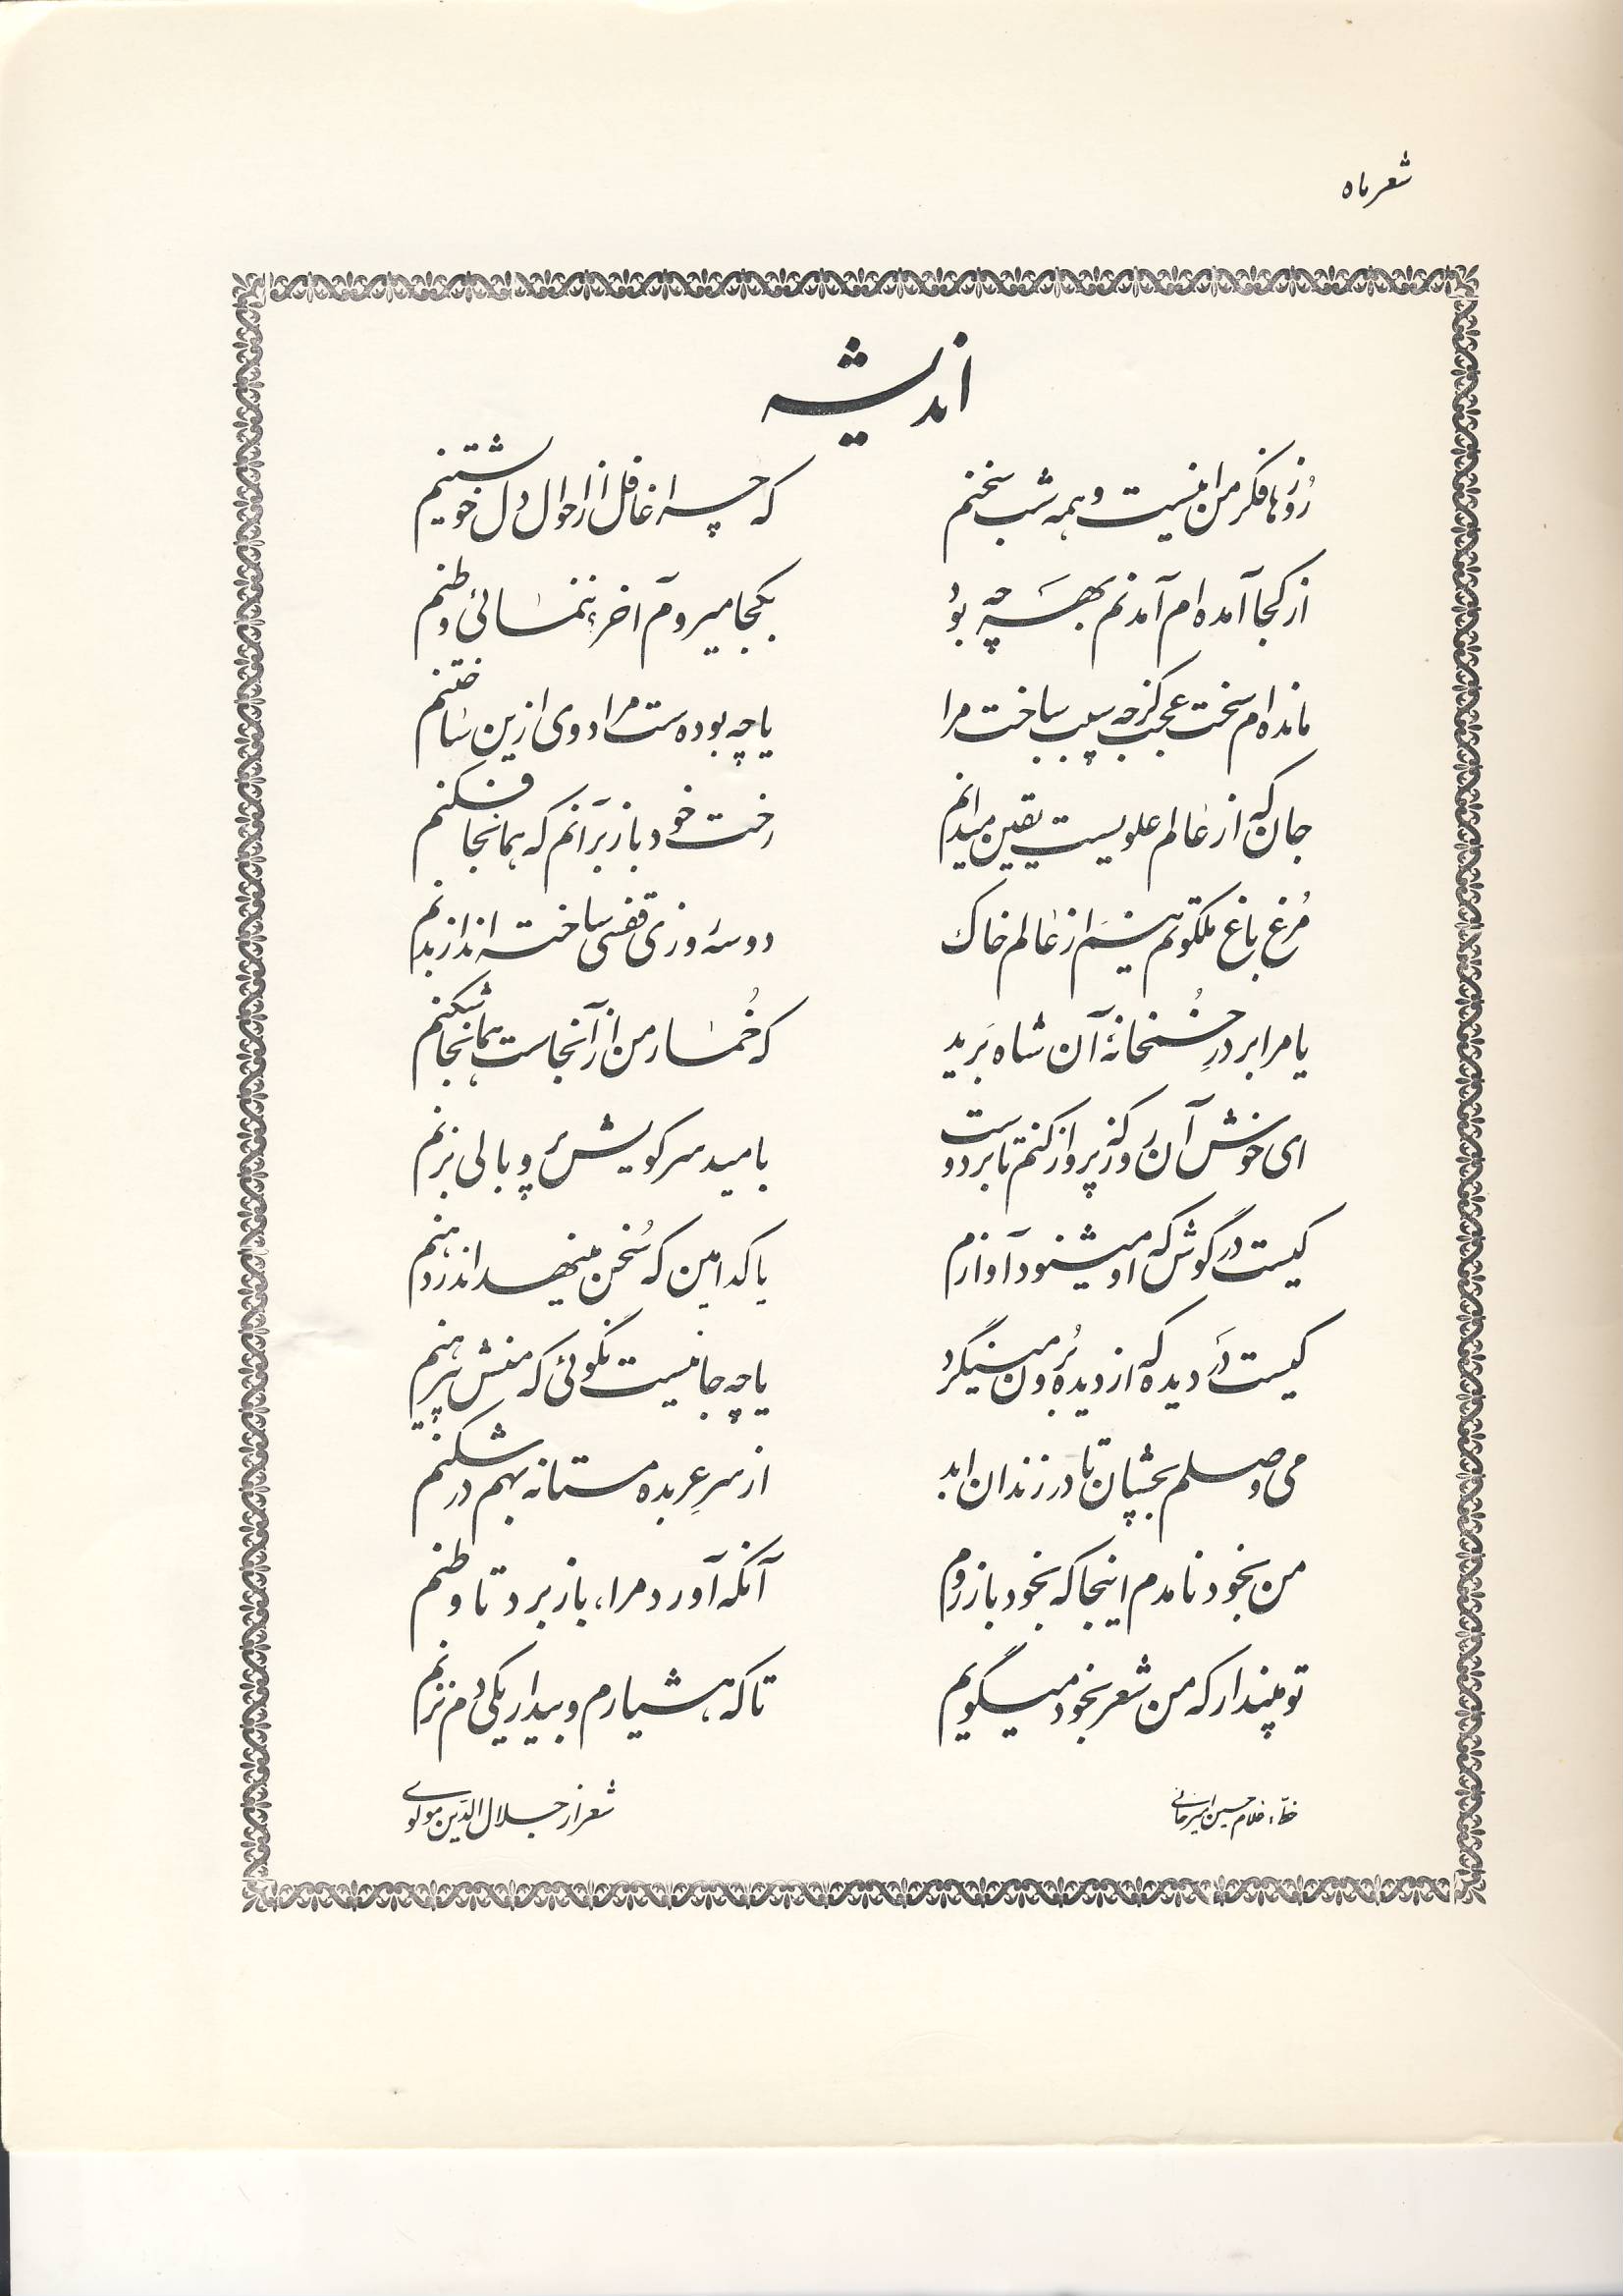 شعر ماه
اندیشه
رُوزها فکر من اینست و همه شب سخنم که چرا غافل از احوال دل خویشتنم
از کجا آمده‌ام آمدنم بهر چه بود بکجا میروم آخر؟ ننمائی وطنم
مانده‌ام سخت عجب کز چه سبب ساخت مرا یا چه بوده‌ست مرادوی ازین ساختنم
جان که از عالم علویست یقین میدانم رخت خود باز برآنم که همانجا فکنم
مُرغ باغ ملکوتم نیَم از عالم خاک دو سه روزی قفسی ساخته‌اند از بدنم
یا مرا بر درِ خُمخانهٔ آن شاه بَرید که خُمار من از آنجاست همانجا شکنم
ای خوش آن روز که پرواز کنم تا بر دوست بامید سر کویش پر و بالی بزنم
کیست در گوش که او میشنود آوازم یا کدامین که سُخن مینهد اندر دهنم
کیست دَر دیده که از دیده بُرون مینگرد یا چه جانیست نگوئی که منش پیرهنم
می وصلم بچشان تا در زندان ابد از سرِ عربده مستانه بهم در شکنم
من بخود نامدم اینجا که بخود باز روم آنکه آورد مرا، باز برد تا وطنم
تو مپندار که من شعر بخود میگویم تا که هشیارم و بیدار یکی دم نزنم
خط: غلامحسین امیرخانی شعر از جلال‌الدّین مولوی